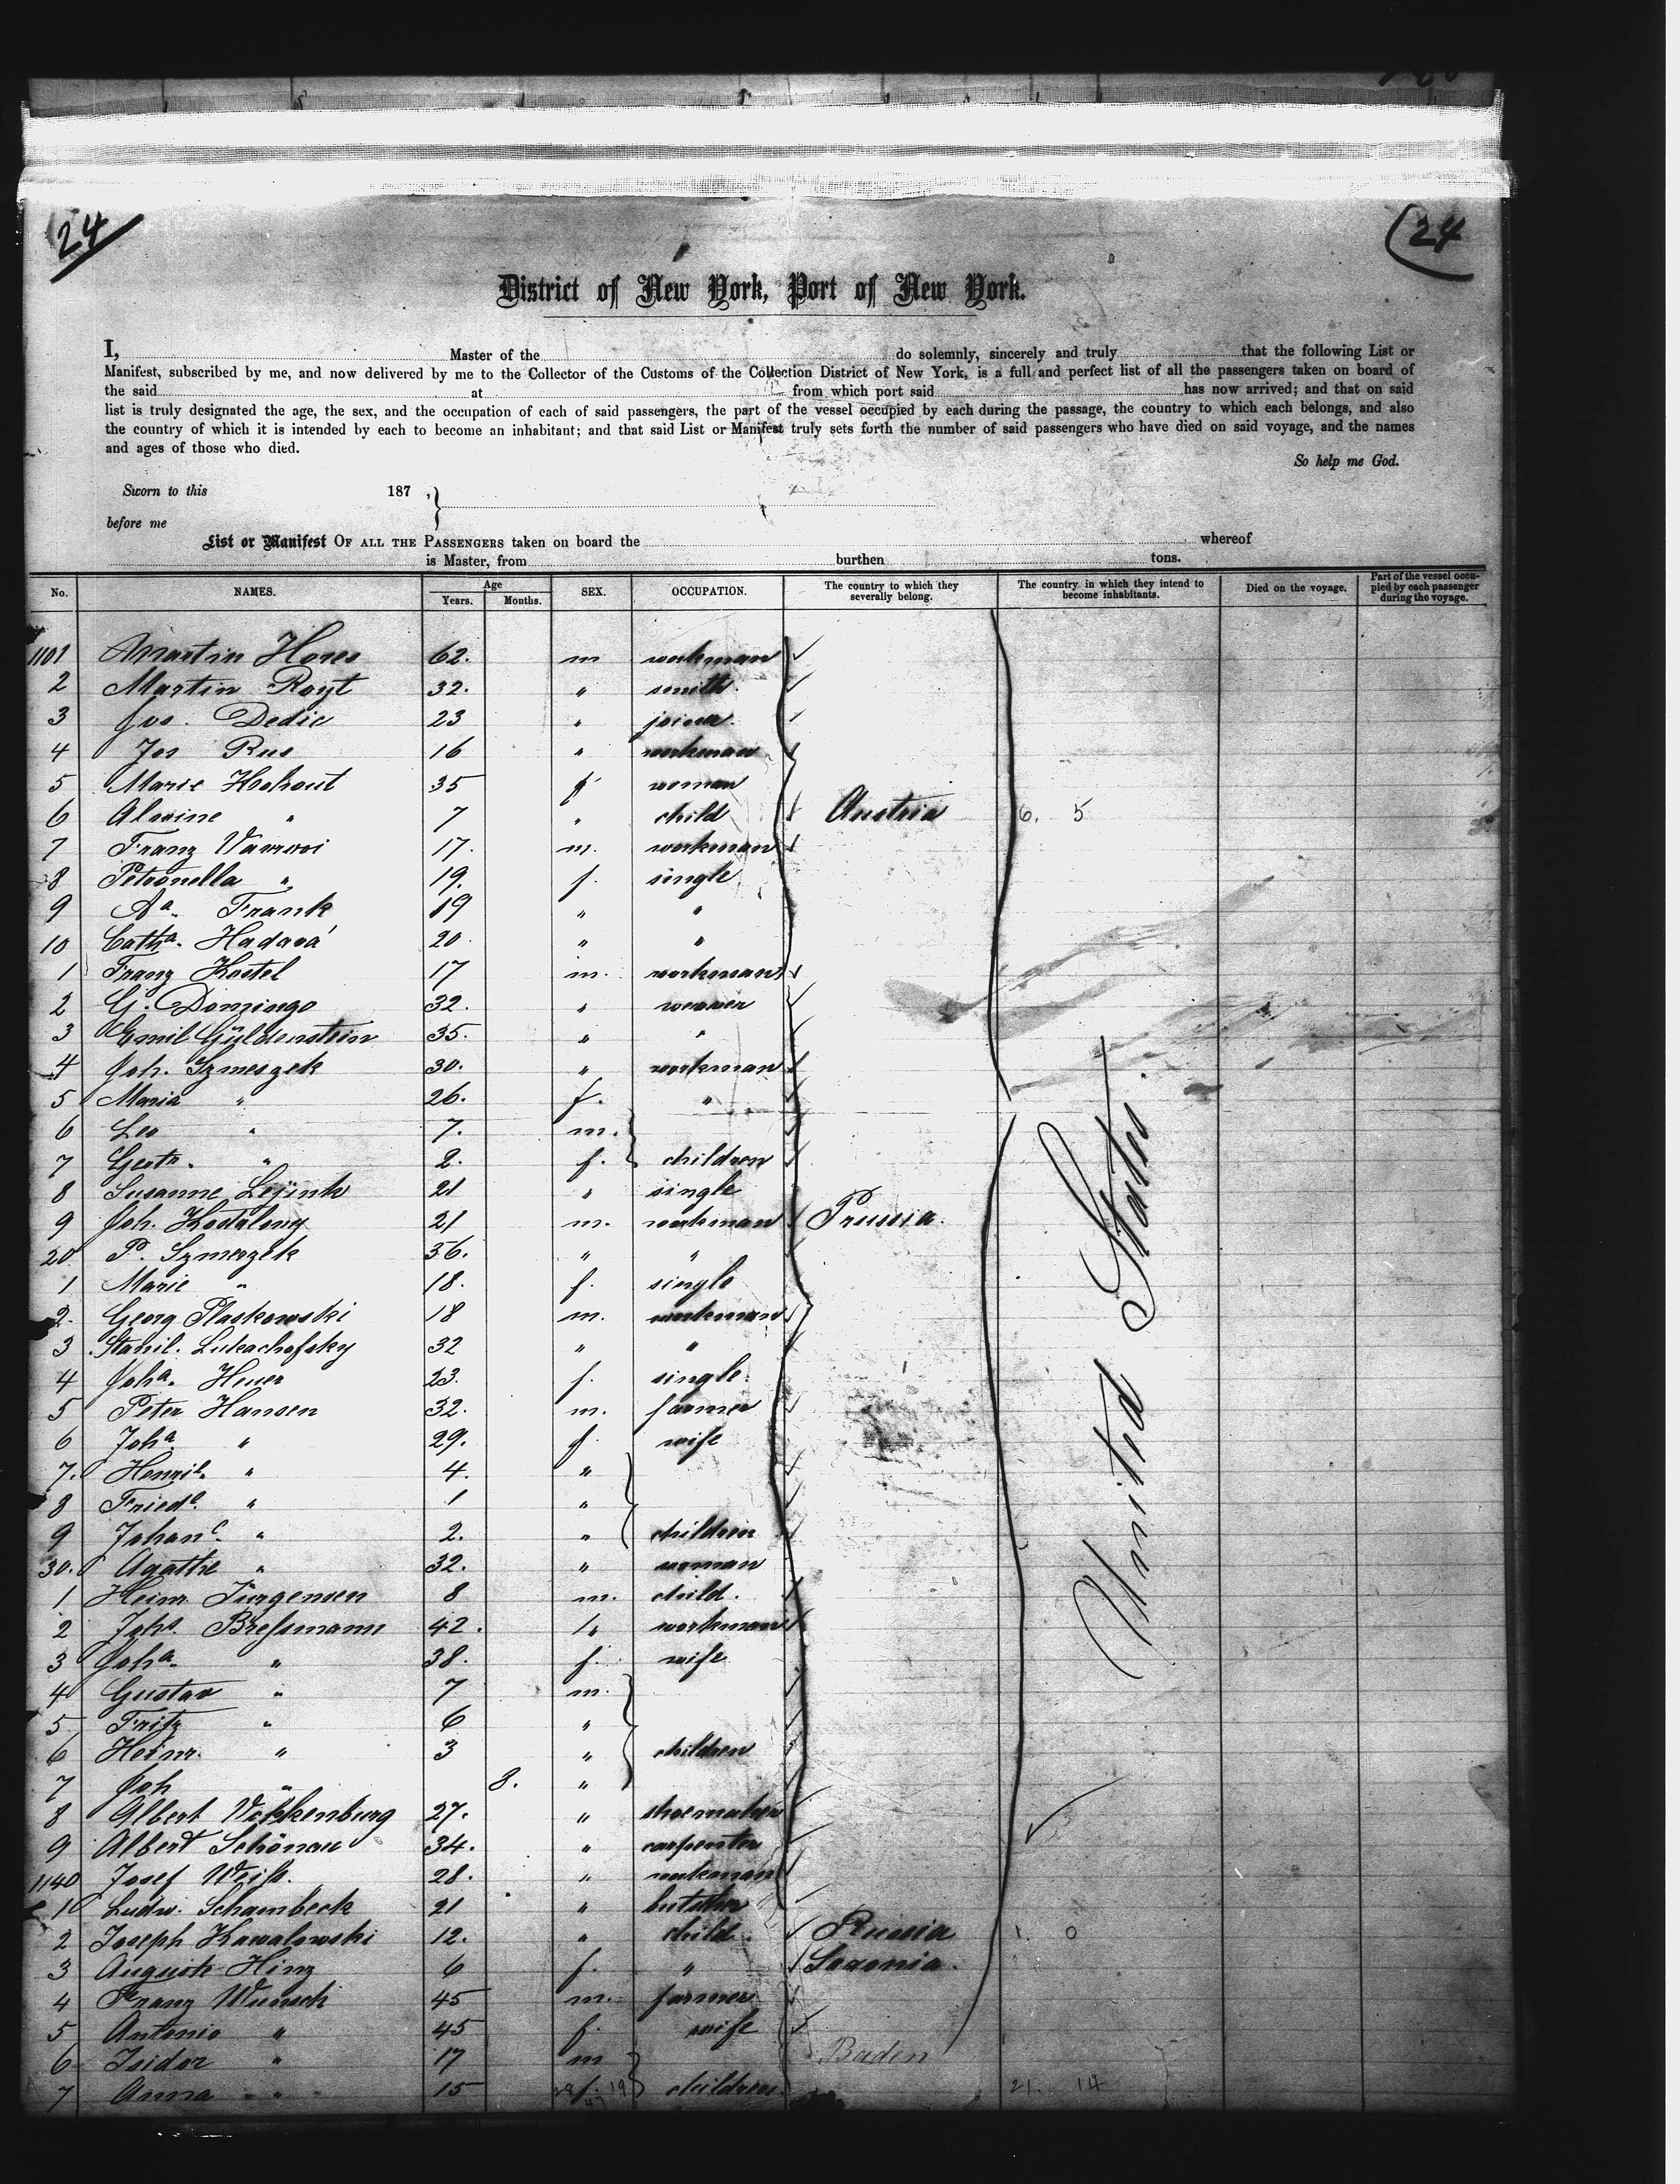 24
24
District of New York, Port of New York.
I, Master of the do solemnly, sincerely and truly that the following List or
Manifest, subscribed by me, and now delivered by me to the Collector of the Customs of the Collection District of New York, is a full and perfect list of all the passengers taken on board of
the said at from which port said has now arrived; and that on said
list is truly designated the age, the sex, and the occupation of each of said passengers, the part of the vessel occupied by each during the passage, the country to which each belongs, and also
the country of which it is intended by each to become an inhabitant; and that said List or Manifest truly sets forth the number of said passengers who have died on said voyage, and the names
and ages of those who died.
So help me God.
Sworn to this 187 ,
before me
List or Manifest OF ALL THE PASSENGERS taken on board the whereof
is Master, from burthen tons.
No. NAMES. Age Years. Months. SEX. OCCUPATION. The country to which they severally belong. The country in which they intend to become inhabitants. Died on the voyage. Part of the vessel occupied by each passenger during the voyage.
1101 Martin 62. m workman
2 Martin 32. " smith
3 Jos. Dedic 23 " joiner
4 Jos Rus 16 " workman
5 Marie 35 f woman
6 Alwine " 7 " child Austria 6. 5
7 Franz 17. m. workman
8 Petronella " 19. f. single
9 Aa. Frank 19 " "
10 Catha. Hadavá 20 " "
1 Franz Kostel 17 m. workman
2 G. Domingo 32. " weaver
3 Emil Güldenstein 35. " "
4 Joh. 30. " workman
5 Maria " 26. f. "
6 Leo " 7. m.
7 " 2. f. children
8 Susanne 21 " single
9 Joh. 21 m. workman Prussia.
20 P. 36. " "
1 Marie " 18. f. single
2. Georg Plaskowski 18 m. workman
3 Stanil. 32 " "
4 Joha. Heuer 23. f. single.
5 Peter Hansen 32. m. farmer
6 Joha. " 29. f. wife
7. " 4. "
8 " 1 "
9 " 2. " children
30. Agathe " 32. " woman
1 Heinr. Jürgensen 8 m. child.
2 Johs. Breſsmann 42. " workman
3 Joha. " 38. f. wife
4 Gustav " 7 m.
5 Fritz " 6 "
6 Heinr. " 3 " children
7 Joh " 8. "
8 Albert 27. " shoemaker
9 Albert Schönau 34. " carpenter
1140 Josef Weiſs. 28. " workman
1 Ludw. Schambeck 21 " butcher
2 Joseph Kawalowski 12. " child. Russia 1. 0
3 Auguste Hinz 6 f. " Saxonia.
4 Franz Wunsch 45 m. farmer
5 Antonie " 45 f. wife
6 Isidor " 17 m Baden
7 Anna " 15 f. children 21. 14
United States.